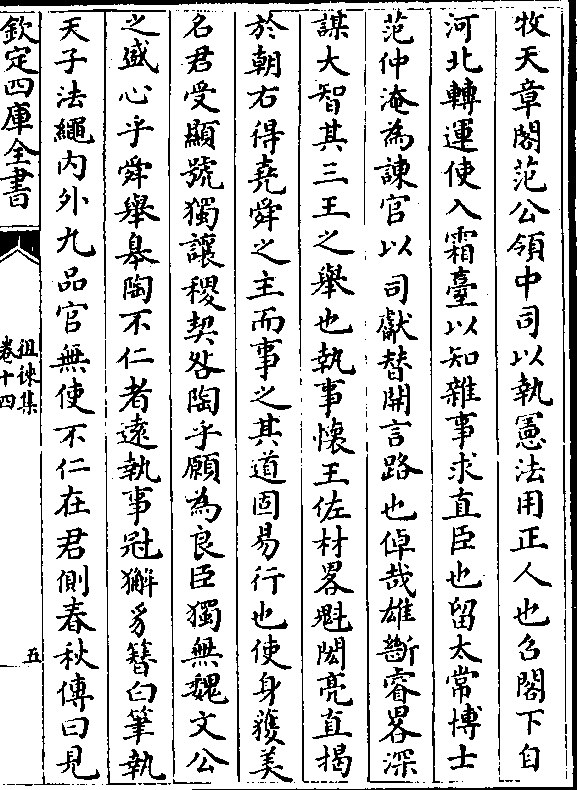 牧天章閣范公領中司以執憲法用正人也召閣下自
河北轉運使入霜臺以知雜事求直臣也留太常博士
范仲淹為諫官以司獻替開言路也倬哉雄斷睿畧深
謀大智其三王之舉也執事懷王佐材畧魁閎亮直揭
於朝右得堯舜之主而事之其道固易行也使身獲美
名君受顯號獨讓稷契咎陶乎願為良臣獨無魏文公
之盛心乎舜舉皋陶不仁者遠執事冠獬豸簪白筆執
天子法繩内外九品官無使不仁在君側春秋傳曰見
欽定四庫全書
徂徕集
卷十四
五